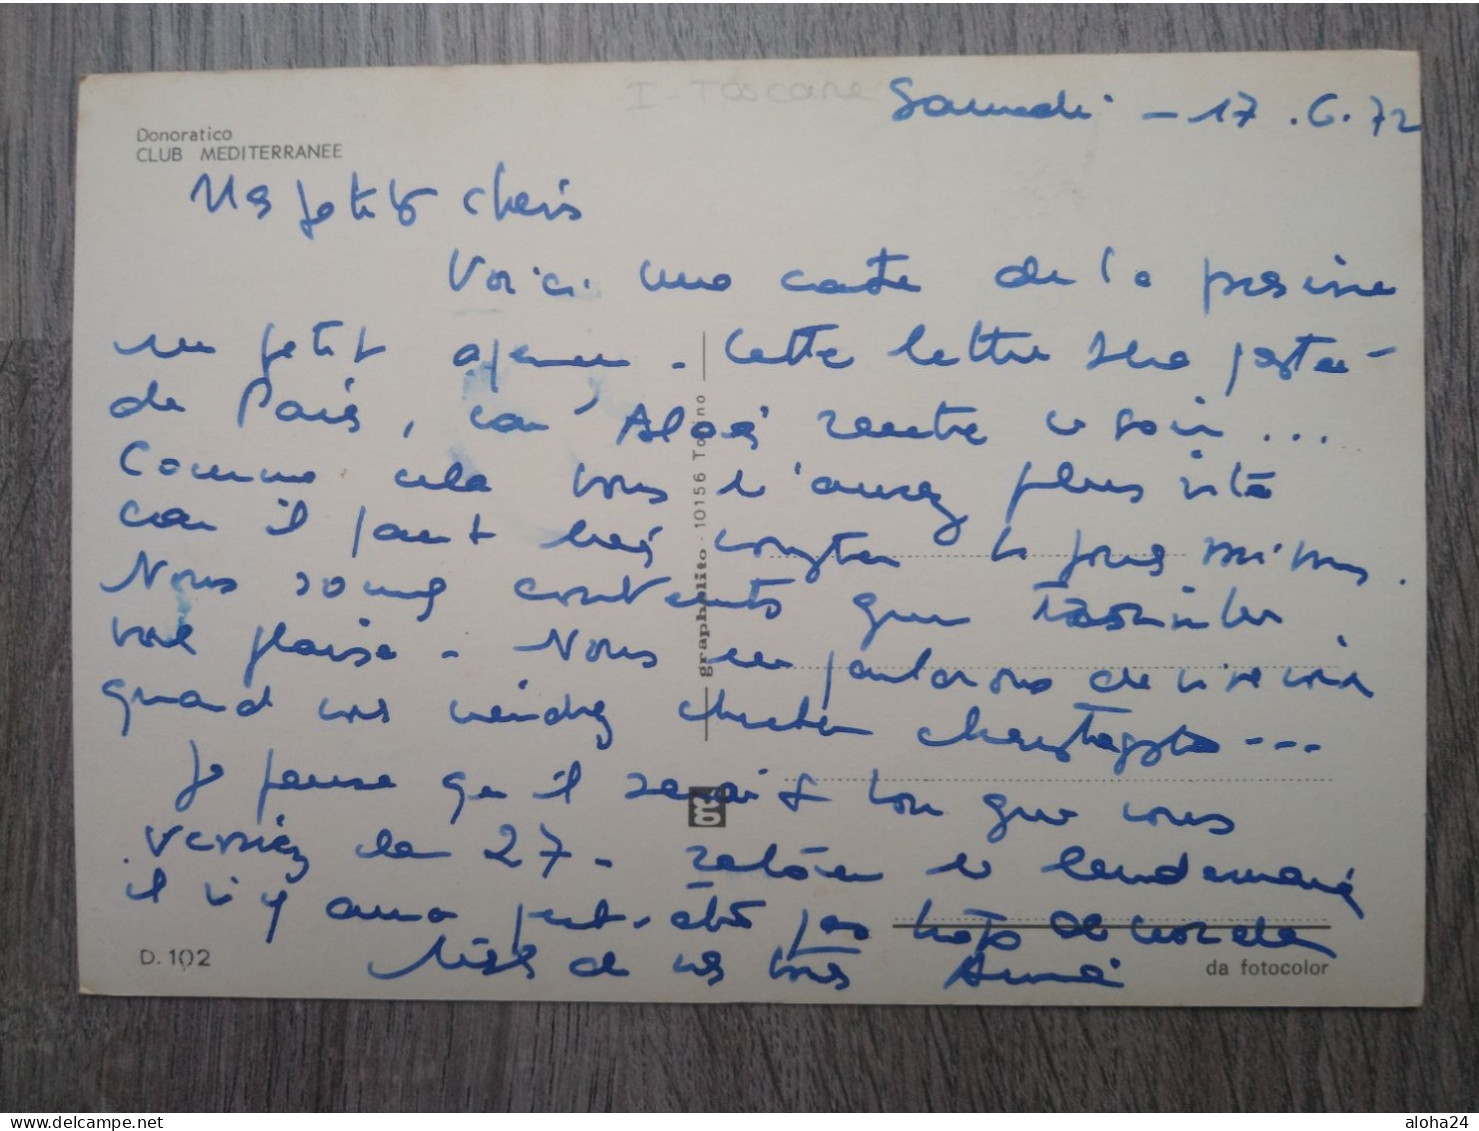 I - Toscane
Samedi - 17.6.72
Donoratico
CLUB MEDITERRANEE
Mes petits chéris
Voici une carte de la piscine
un petit aperçu - Cette lettre sera postée
de Paris, car rentre ce soir...
Comme cela vous l'aurez plus vite
car il faut compter jours minimus.
Nous sommes contents que
vous plaise - Nous en parlerons de vive voix
quand vous viendrez chercher ...
Je pense qu'il serait bon que vous
veniez le 27 - le lendemain
il n'y aura peut-être pas trop de monde
de nous tous Aimé
grapholito - 10156 Torino
gr
D. 102
da fotocolor
delcampe.net
aloha24